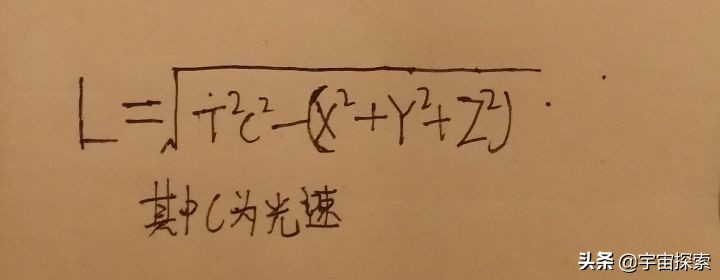 L=√T²C²-(X²+Y²+Z²)
其中C为光速
头条 @宇宙探索